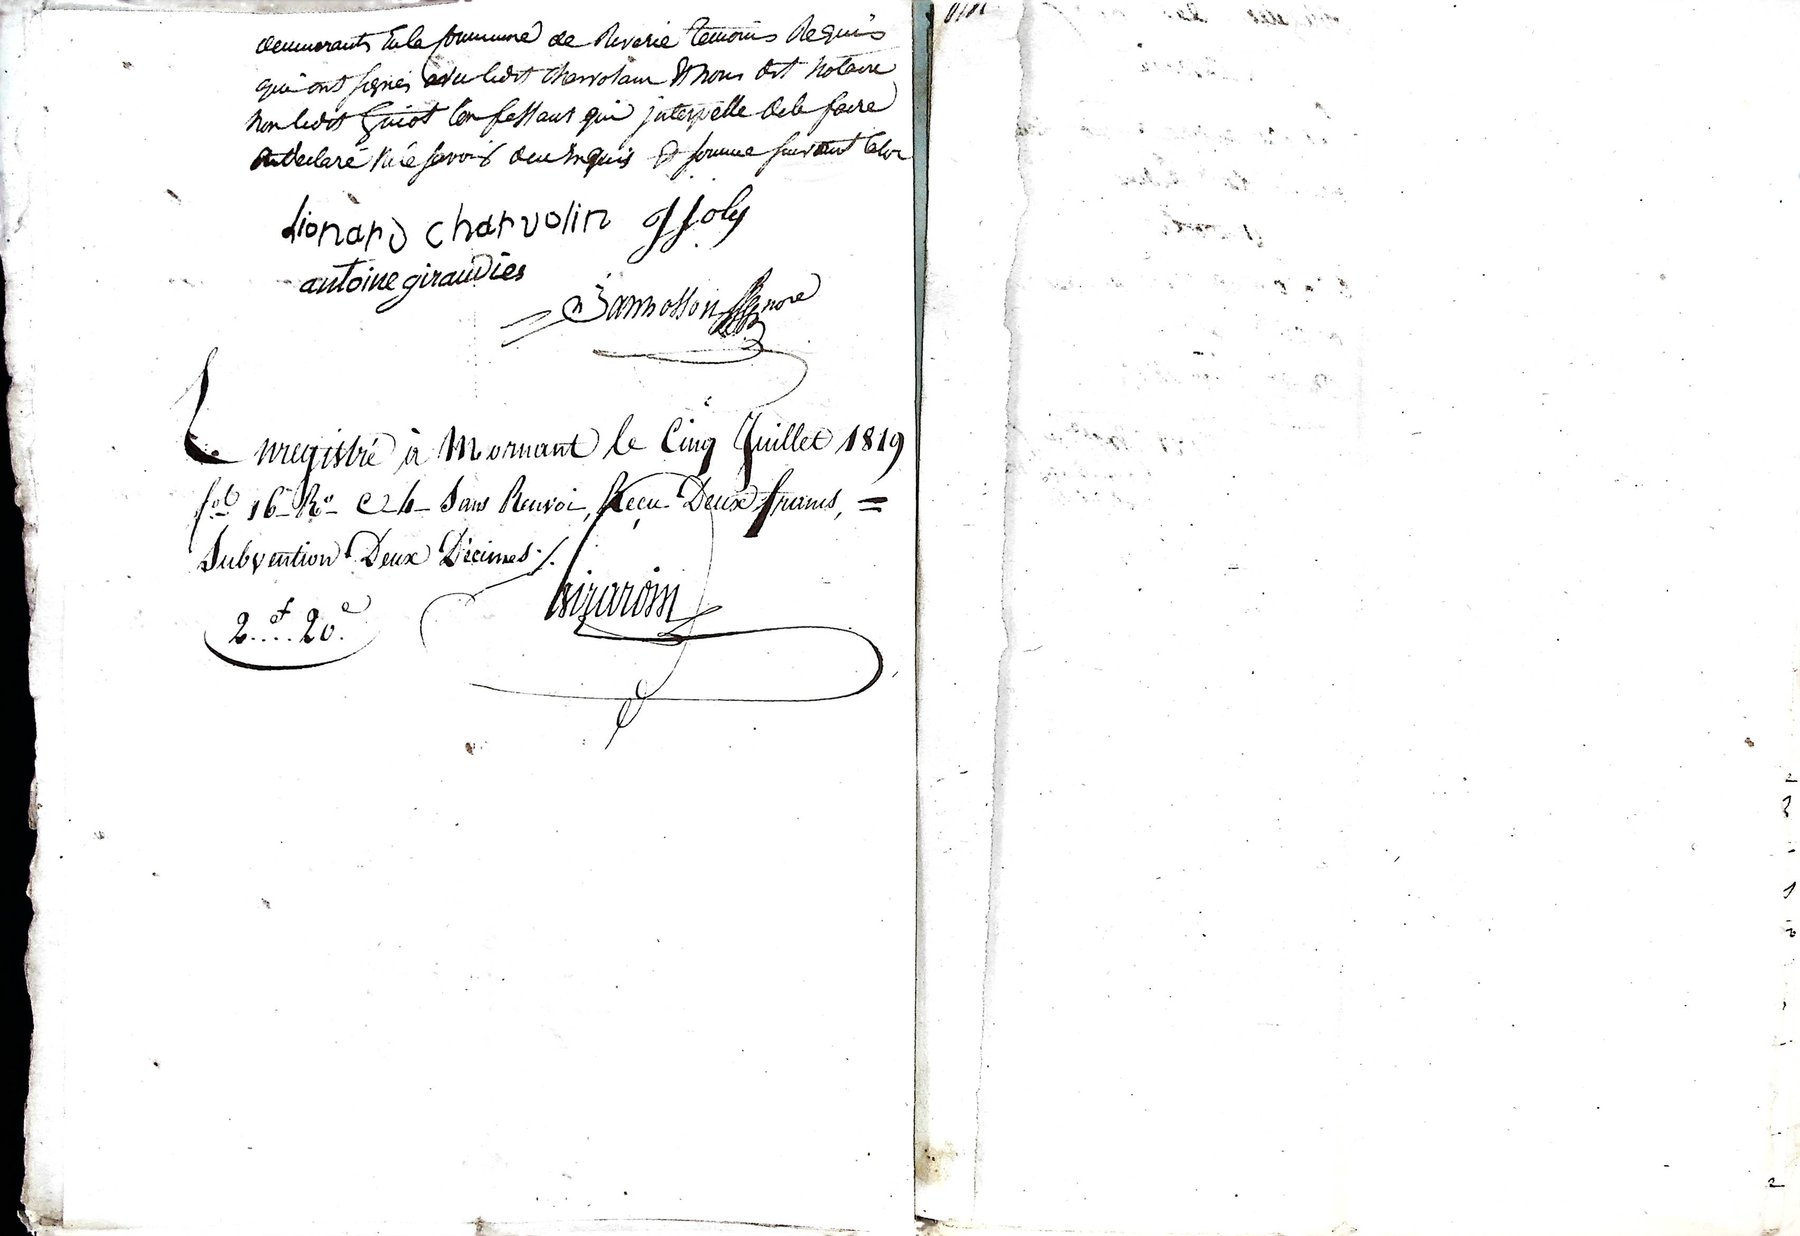 demeurants en la Commune de Riverie temoins Requis
qui ont signés avec ledit charvolain & nous dit Notaire
Non ledit Guiot Confessant qui interpellé de le faire
a declaré Ne le savoir de ce Enquis & somme suivant la loi
Lionard charvolin JJoly
antoine giraudier
nore
Enregistré à Mornant le Cinq Juillet 1819
fol 16 Ro C 4 Sans Renvoi, Reçu Deux francs, =
Subvention Deux Décimes ./.
Girardin
2.f... 20.c